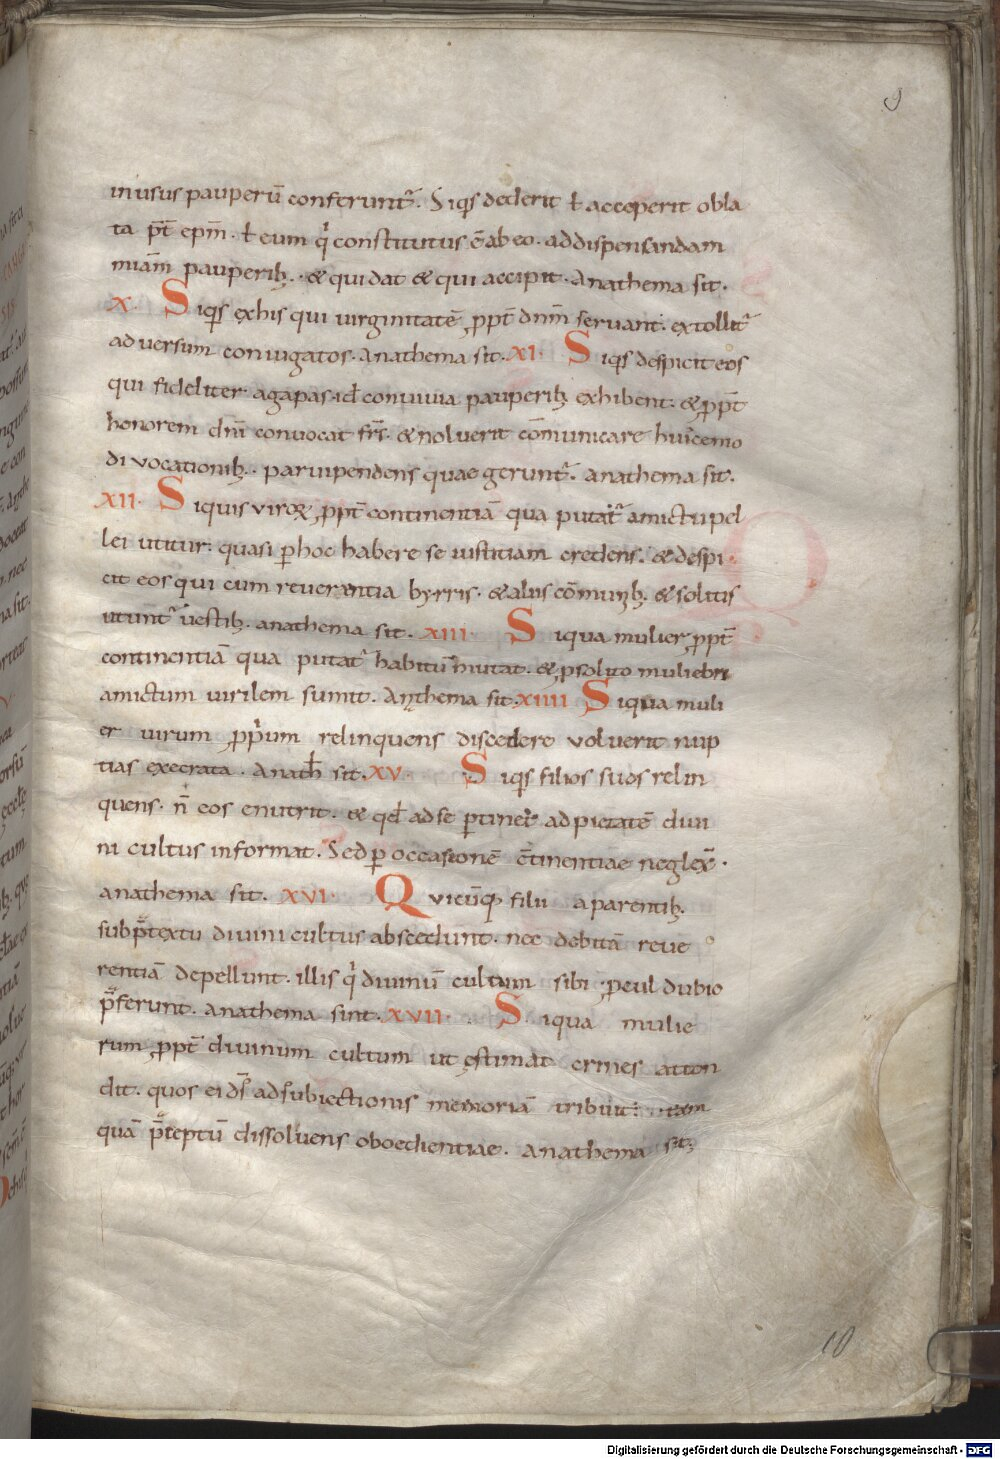 9
in usus pauperū conferunt᷑. Siq̇s dederit ł acceperit obla
ta p̄t ep̄m. ł eum q̇ constitutus ē ab eo. ad dispensandam
miām pauperib;. & qui dat & qui accipit. Anathema sit.
X. Siq̇s ex his qui virginitatē ꝓpt̄ dn̄m servant. extollit᷑
adversum coniugatos. Anathema sit. XI. Siq̇s despicit eos
qui fideliter agapas. id̄ convivia pauperib; exhibent. & ꝓpt̄
honorem dn̄i convocat fr̄s. & noluerit cōmunicare huiᷤcemo
di vocationib;. parvipendens quae gerunt᷑. anathema sit.
XII. Siquis viroꝝ ꝓpt̄ continentiā qua putat᷑ amictu pel
lei utitur. quasi ꝑ hoc habere se iustitiam credens. & despi
cit eos qui cum reverentia byrris. & aliis cōmunib; & solitis
utunt᷑ vestib;. anathema sit. XIII. Siqua mulier ꝓpt̄
continentiā qua putat᷑ habitū mutat. & ꝓ solito muliebri
amictum virilem sumit. Anathema sit. XIIII Siqua muli
er virum ꝓprium relinquens discedere voluerit nup
tias execrata. Anath̄ sit. XV. Siq̇s filios suos relin
quens. n̄ eos enutrit. & qd̄ ad se ꝑtinet᷑ ad pietatē divi
ni cultus informat. Sed ꝑ occasionē c̄tinentiae neglex̄.
anathema sit. XVI. Quicūq; filii a parentib;
sub p̄textu divini cultus abscedunt. nec debitā reve
rentiā depellunt. illis q̇ divinū cultum sibi ꝓcul dubio
p̄ferunt. anathema sint. XVII. Siqua mulie
rum ꝓpt̄ divinum cultum ut ęstimat crines atton
dit. quos ei ds̄ ad subiectionis memoriā tribuit. tam
quā p̄ceptū dissolvens oboedientiae. anathema sit;
10
Digitalisierung gefördert durch die Deutsche Forschungsgemeinschaft - DFG